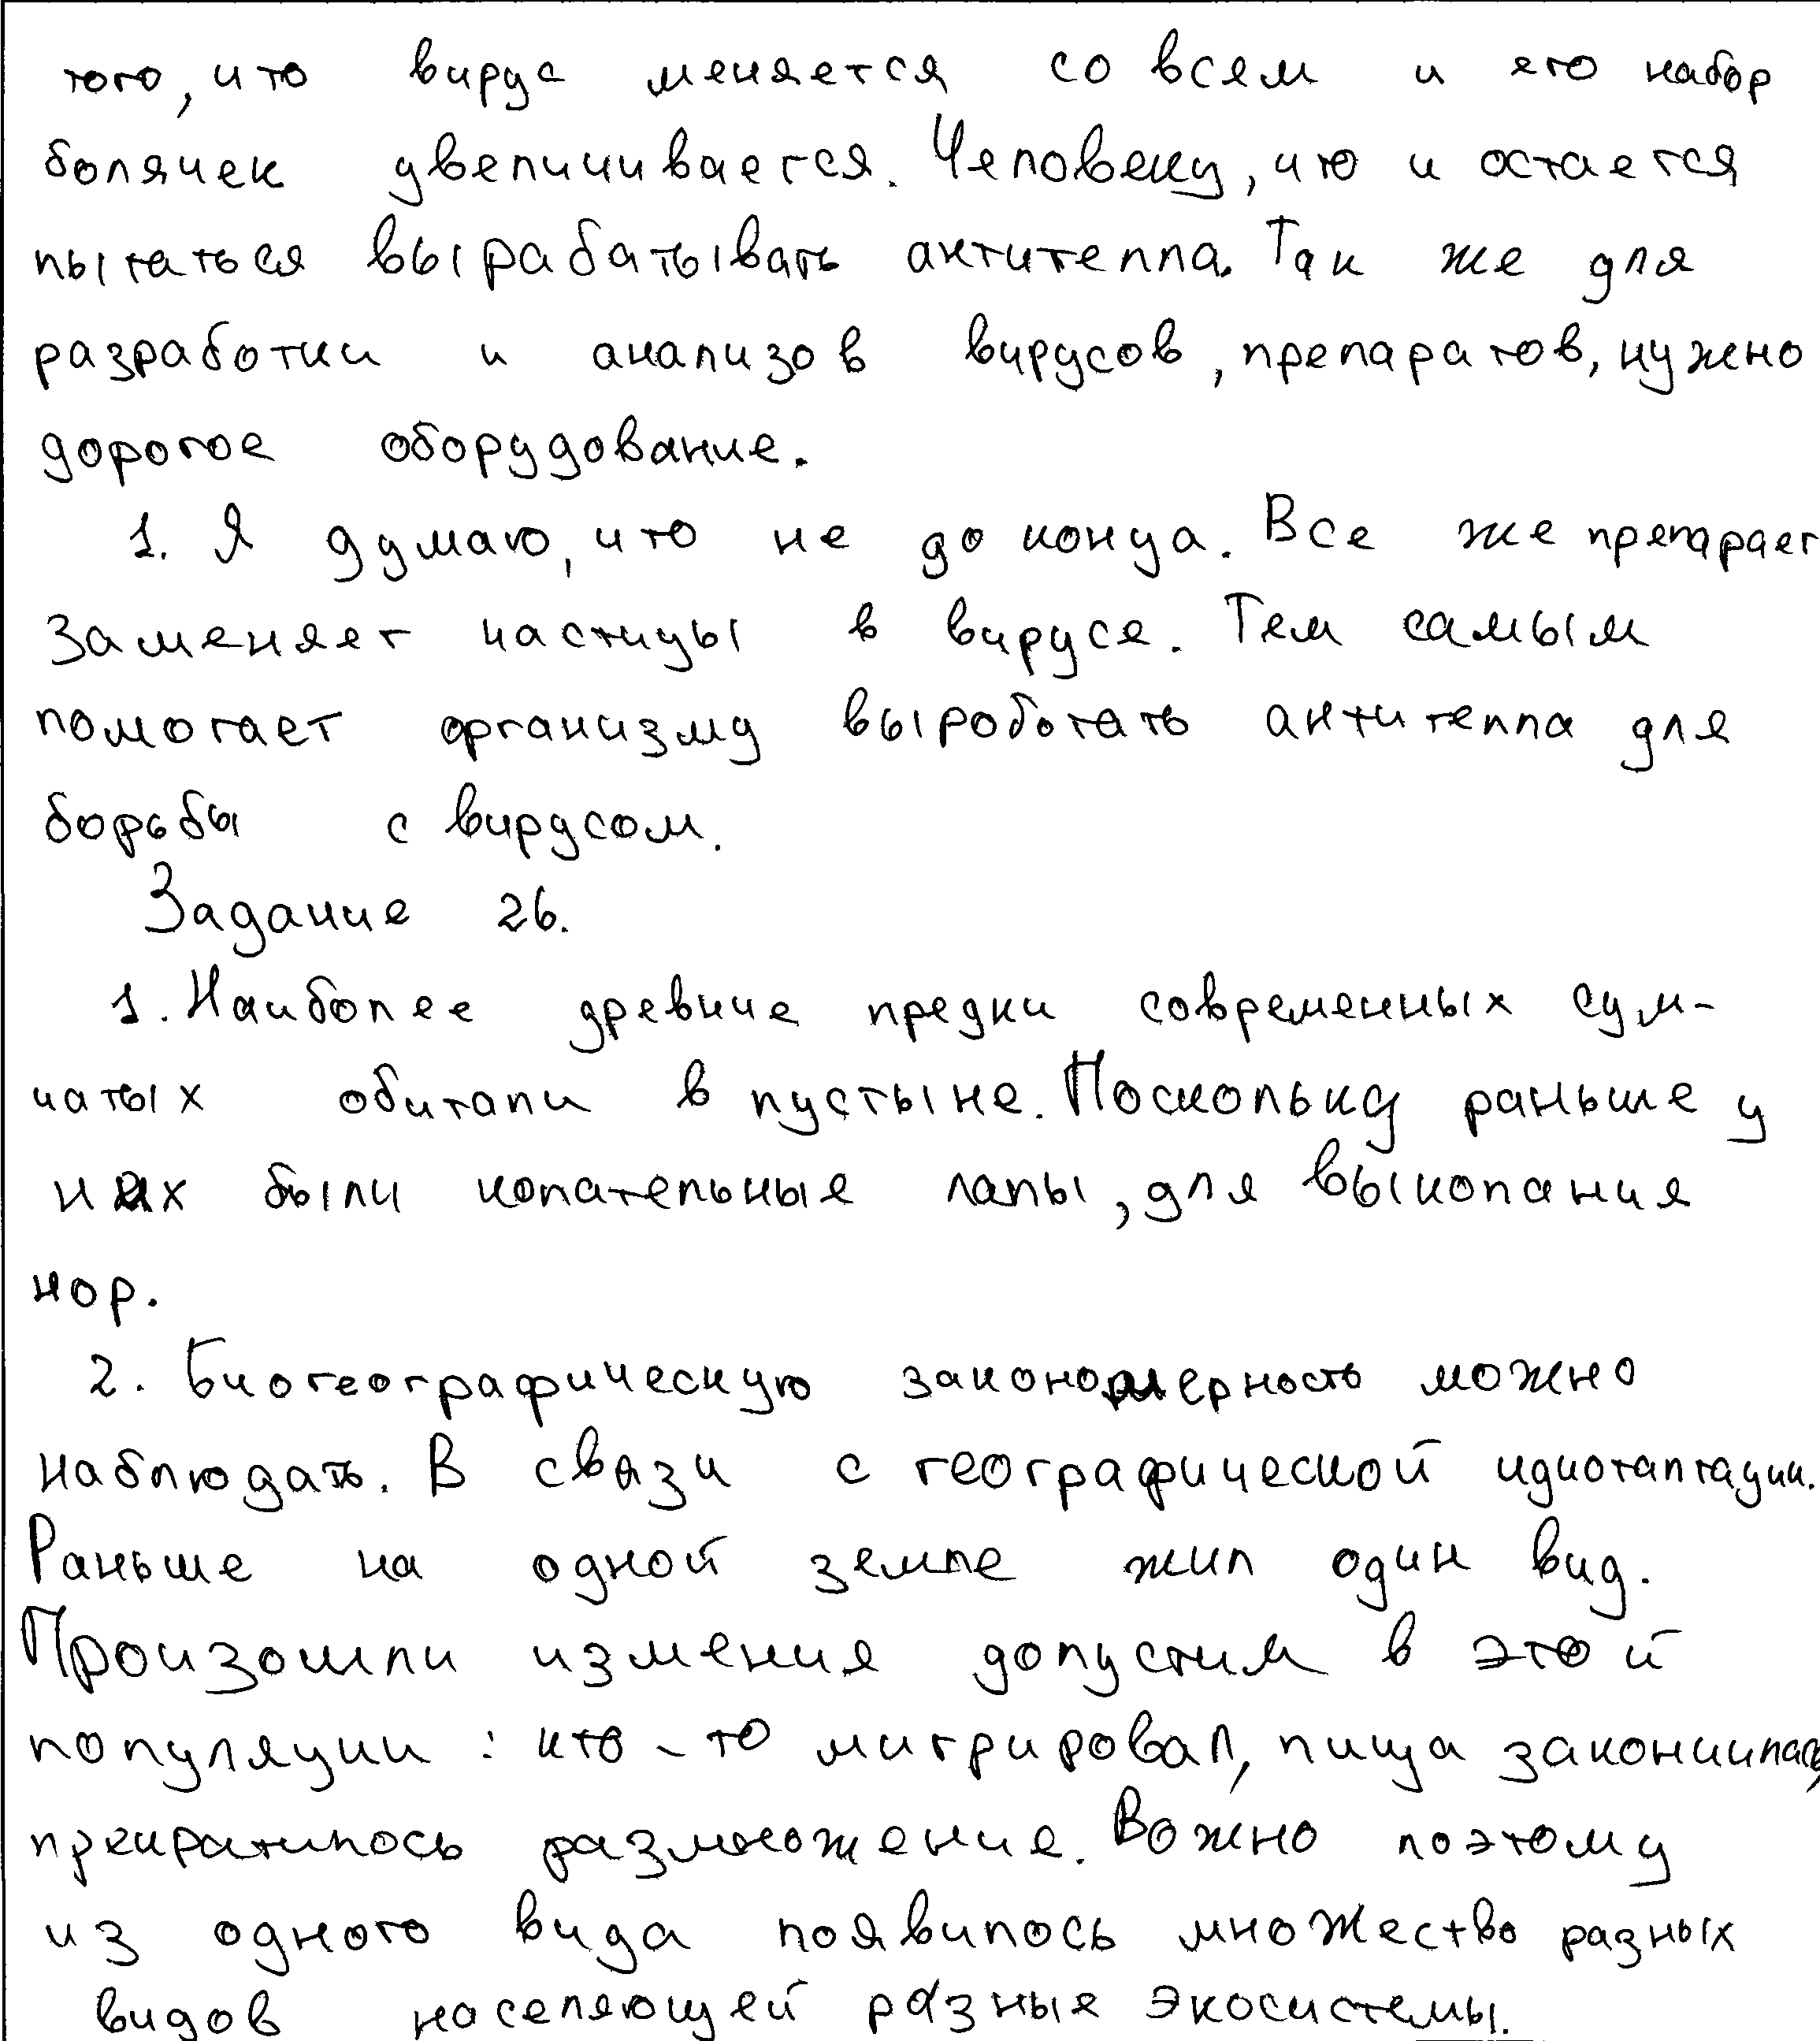 того, что вирус меняется со всем и его набор
болячек увеличивается. Человеку, что и остается
пытаться вырабатывать антитела. Так же для
разработки и анализов вирусов, препаратов, нужно
дорогое оборудование.
1. Я думаю, что не до конца. Все же препарает
заменяет частицы в вирусе. Тем самым
помогает организму выроботать антитела для
борьбы с вирусом.
Задание 26.
1. Наиболее древние предки современных сум-
чатых обитали в пустыне. Поскольку раньше у
них были копательные лапы, для выкопания
нор.
2. Биогеографическую закономерность можно
наблюдать. В связи с географической идиотаптации.
Раньше на одной земле жил один вид.
Произошли измения допустим в этой
популяции: кто-то мигрировал, пища закончилась,
прекратилось размножение. Вожно поэтому
из одного вида появилось множество разных
видов населяющей разные экосистемы.